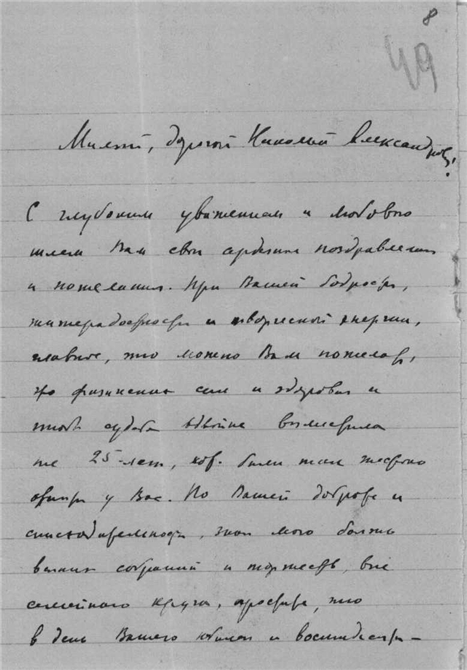 8
49
Милый, дорогой Николай Александрович!
С глубоким уважением и любовью
шлем Вам свои сердечн поздравления
и пожелания. При Вашей бодрости,
жизнерадостности и творческой энергии,
главное, что можно Вам пожелать,
это физических сил и здоровья и
чтоб судьба вдвойне возместила
те 25 лет, кот. были так жестоко
отняты у Вас. По Вашей доброте и
снисходительности, зная мою боязнь
всяких собраний и торжеств, вне
семейного круга, простите, что
в день Вашего юбилея и восьмидесяти-